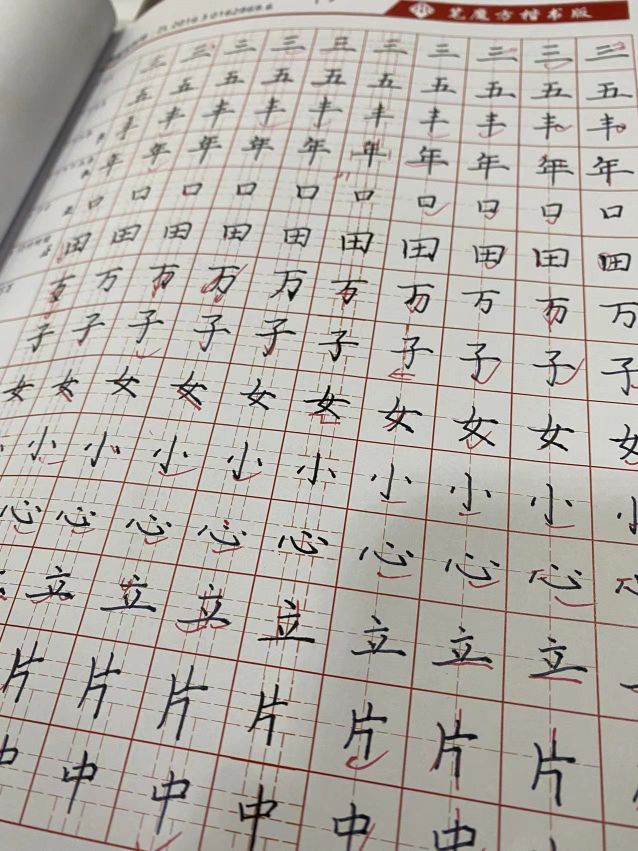 笔魔方楷书版
三 三 三 三 三 三 三 三 三 三
五 五 五 五 五 五 五 五 五 五
丰 丰 丰 丰 丰 丰 丰 丰 丰 丰
年 年 年 年 年 年 年 年 年 年
口 口 口 口 口 口 口 口 口 口
田 田 田 田 田 田 田 田 田 田
万 万 万 万 万 万 万 万 万 万
子 子 子 子 子 子 子 子 子 子
女 女 女 女 女 女 女 女 女 女
小 小 小 小 小 小 小 小
心 心 心 心 心 心 心 心
立 立 立 立 立 立 立
片 片 片 片 片 片 片
中 中 中 中 中 中